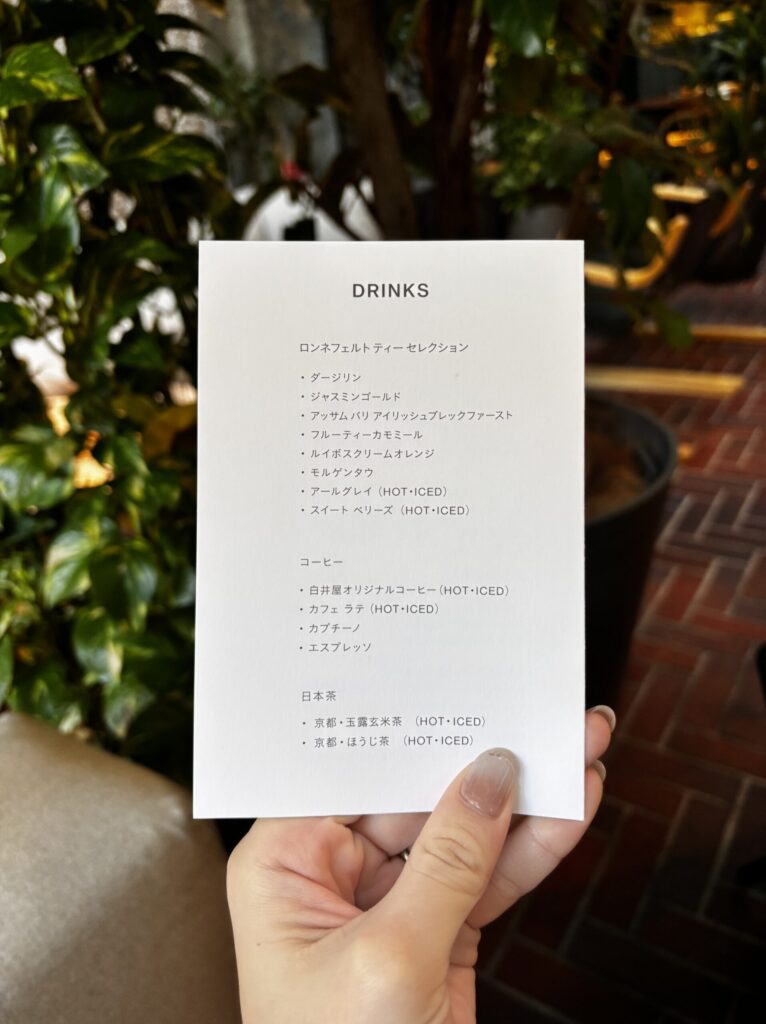 DRINKS
ロンネフェルト ティー セレクション
・ダージリン
・ジャスミンゴールド
・アッサム バリ アイリッシュブレックファースト
・フルーティーカモミール
・ルイボスクリームオレンジ
・モルゲンタウ
・アールグレイ（HOT・ICED）
・スイート ベリーズ（HOT・ICED）
コーヒー
・白井屋オリジナルコーヒー（HOT・ICED）
・カフェ ラテ（HOT・ICED）
・カプチーノ
・エスプレッソ
日本茶
・京都・玉露玄米茶 （HOT・ICED）
・京都・ほうじ茶 （HOT・ICED）